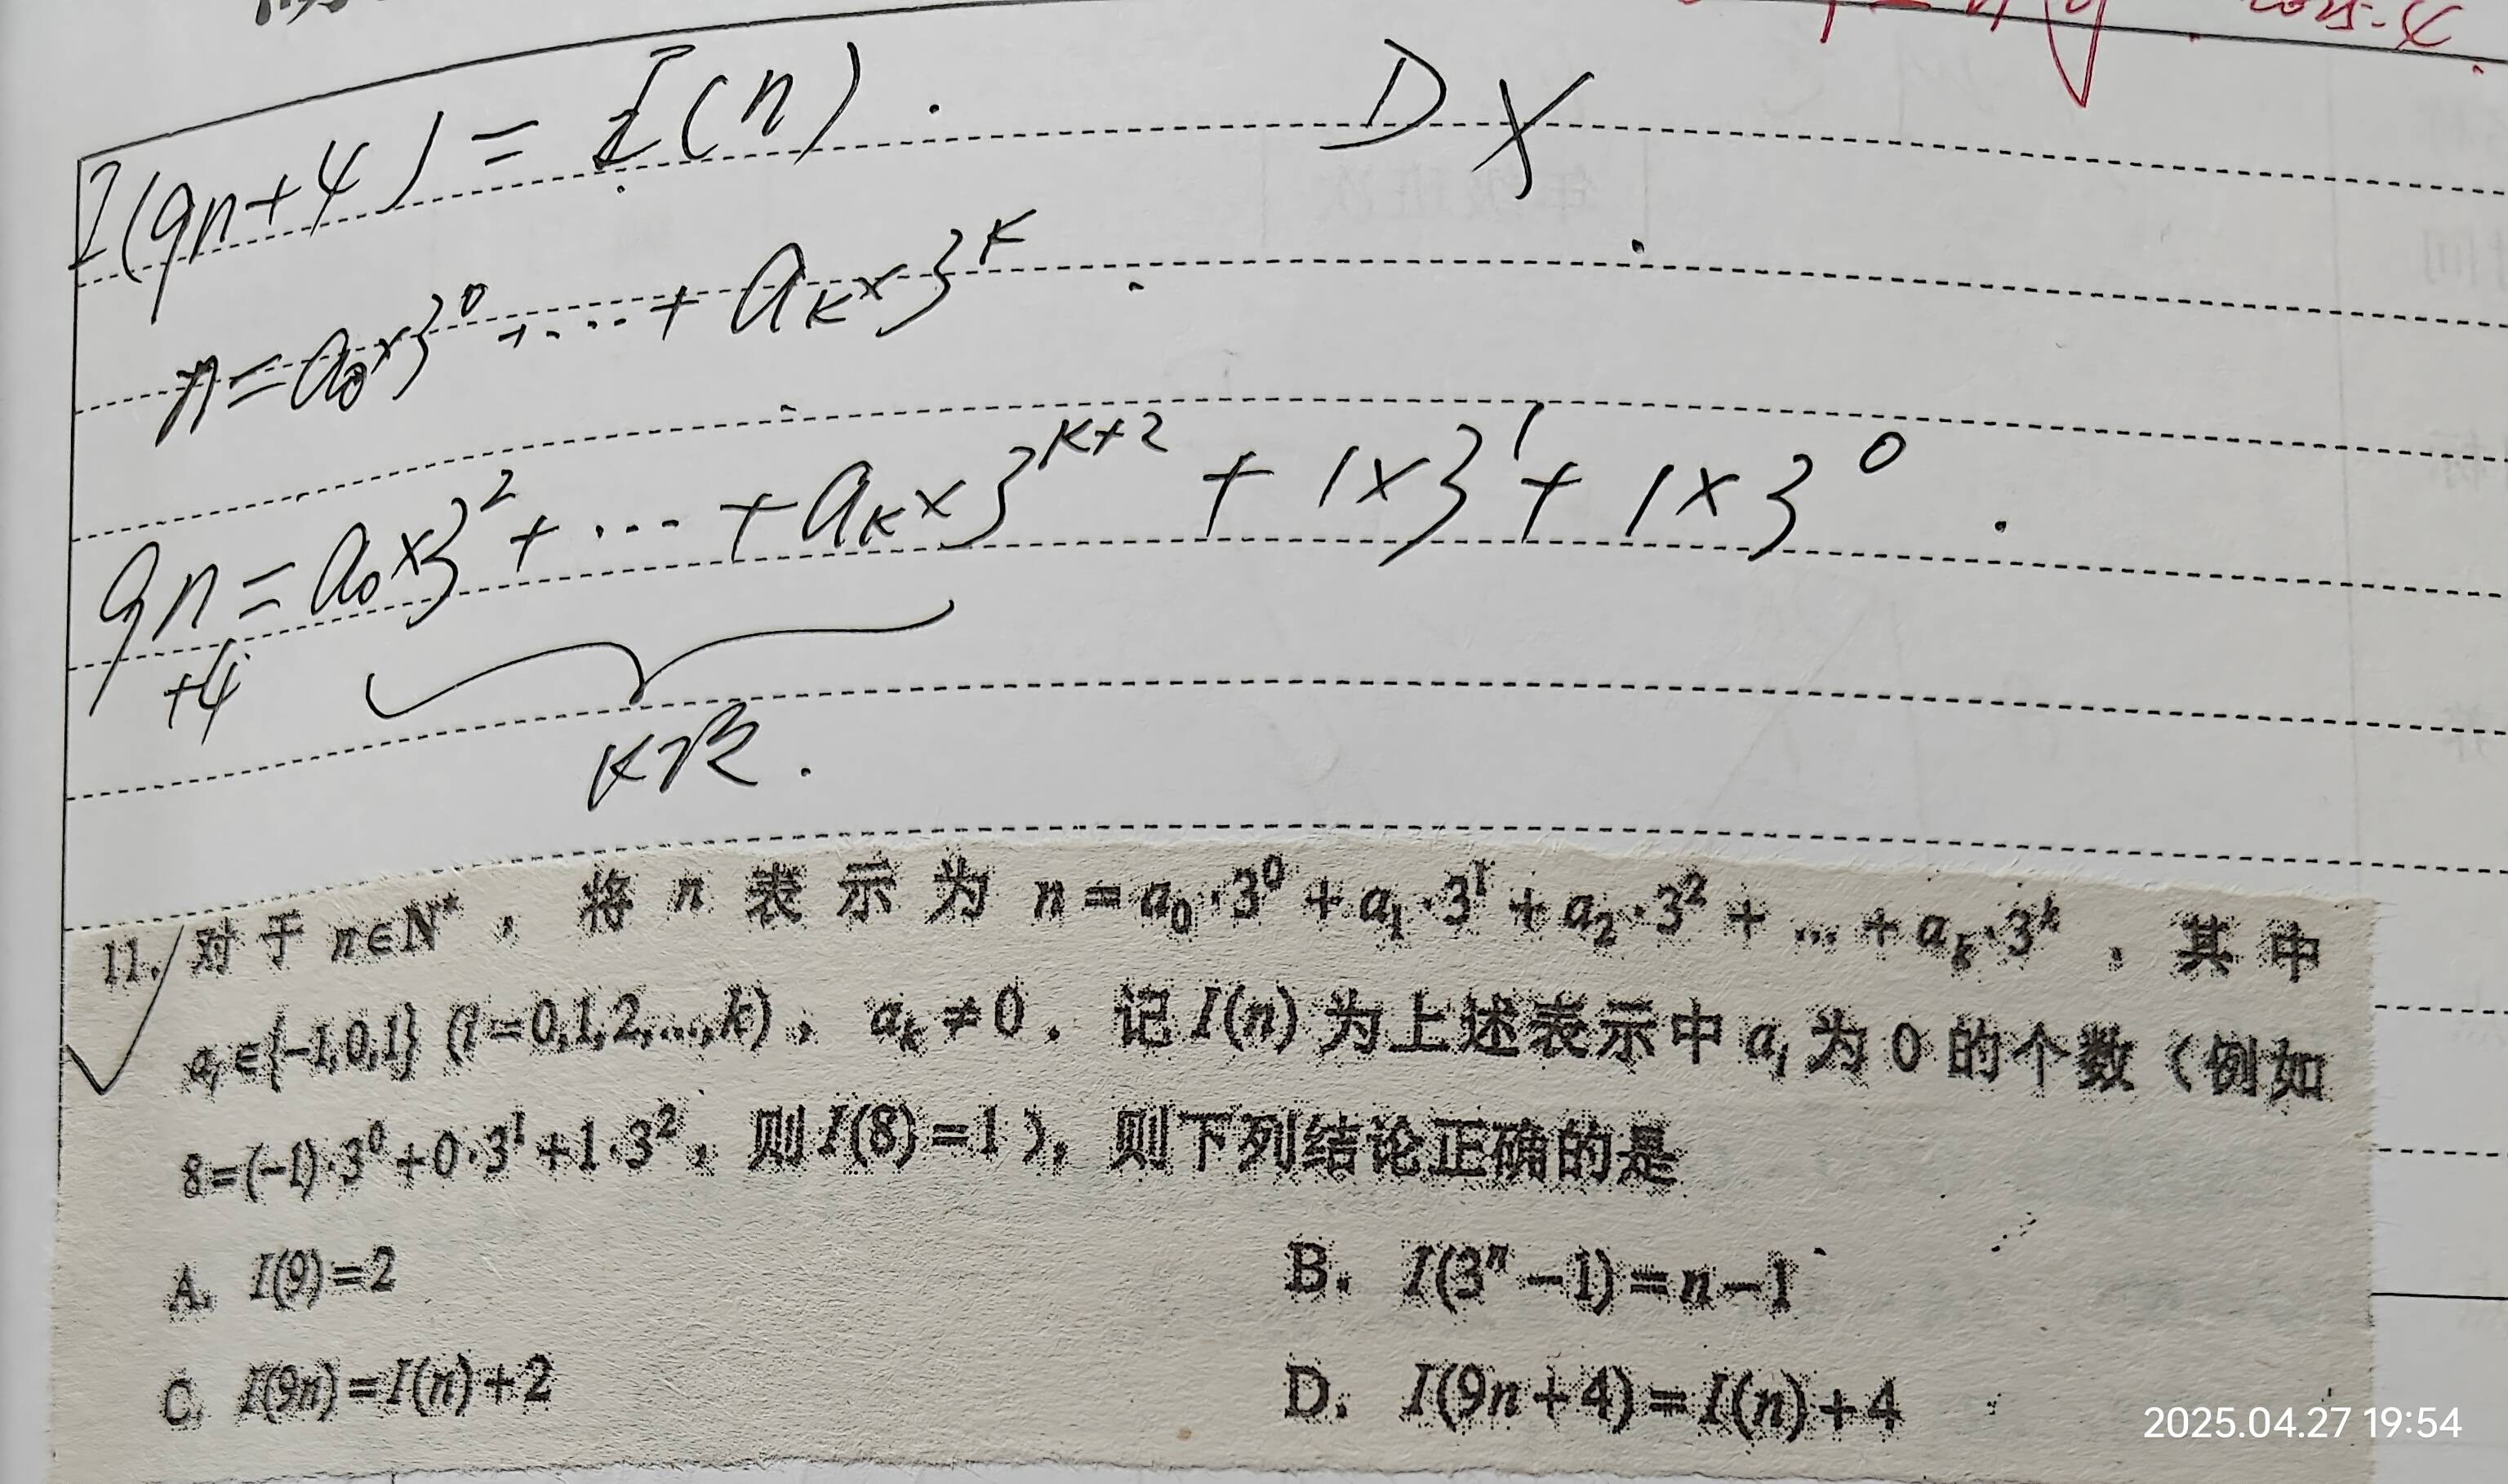 2025.4
I(9n+4) = I(n). D ×
n = a₀×3⁰ + ... + aₖ×3ᴷ.
9n+4 = a₀×3² + ... + aₖ×3ᴷ⁺² + 1×3¹ + 1×3⁰.
11. 对于 n∈N*,将 n 表示为 n=a₀·3⁰+a₁·3¹+a₂·3²+...+aₖ·3ᵏ,其中
aᵢ∈{-1,0,1} (i=0,1,2,...,k),aₖ≠0.记 I(n) 为上述表示中 aᵢ 为 0 的个数(例如
8=(-1)·3⁰+0·3¹+1·3²,则 I(8)=1),则下列结论正确的是
A. I(9)=2 B. I(3ⁿ-1)=n-1
C. I(9n)=I(n)+2 D. I(9n+4)=I(n)+4
2025.04.27 19:54